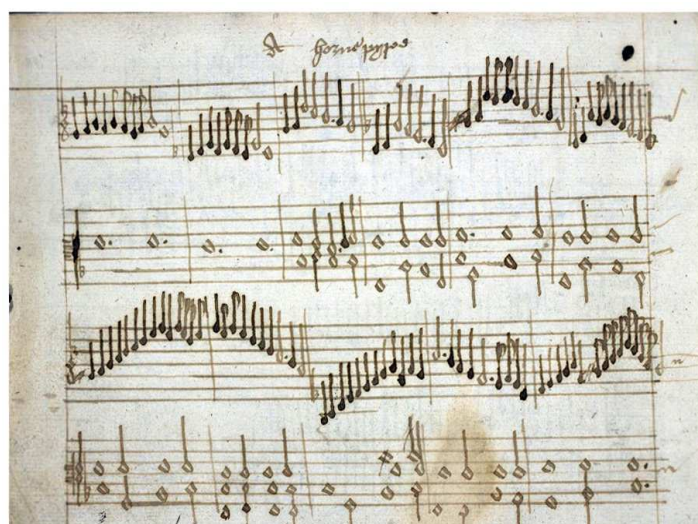 A hornepype